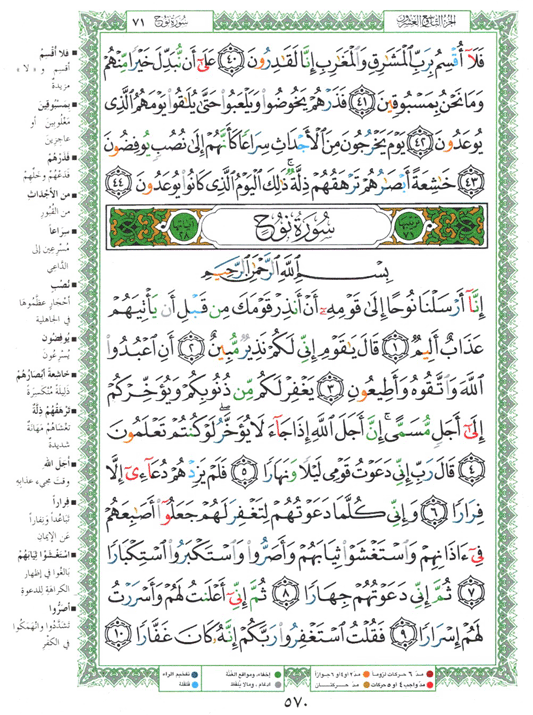 الجزء التاسع والعشرون
سورة نوح ٧١
فَلَا أُقْسِمُ بِرَبِّ الْمَشَارِقِ وَالْمَغَارِبِ إِنَّا لَقَادِرُونَ ﴿٤٠﴾ عَلَىٰ أَن نُّبَدِّلَ خَيْرًا مِّنْهُمْ
وَمَا نَحْنُ بِمَسْبُوقِينَ ﴿٤١﴾ فَذَرْهُمْ يَخُوضُوا وَيَلْعَبُوا حَتَّىٰ يُلَاقُوا يَوْمَهُمُ الَّذِي
يُوعَدُونَ ﴿٤٢﴾ يَوْمَ يَخْرُجُونَ مِنَ الْأَجْدَاثِ سِرَاعًا كَأَنَّهُمْ إِلَىٰ نُصُبٍ يُوفِضُونَ
﴿٤٣﴾ خَاشِعَةً أَبْصَارُهُمْ تَرْهَقُهُمْ ذِلَّةٌ ۚ ذَٰلِكَ الْيَوْمُ الَّذِي كَانُوا يُوعَدُونَ ﴿٤٤﴾
ترتيبها ٧١ سُورَةُ نُوحٍ آياتها ٢٨
بِسْمِ اللَّهِ الرَّحْمَٰنِ الرَّحِيمِ
إِنَّا أَرْسَلْنَا نُوحًا إِلَىٰ قَوْمِهِ أَنْ أَنذِرْ قَوْمَكَ مِن قَبْلِ أَن يَأْتِيَهُمْ
عَذَابٌ أَلِيمٌ ﴿١﴾ قَالَ يَا قَوْمِ إِنِّي لَكُمْ نَذِيرٌ مُّبِينٌ ﴿٢﴾ أَنِ اعْبُدُوا
اللَّهَ وَاتَّقُوهُ وَأَطِيعُونِ ﴿٣﴾ يَغْفِرْ لَكُم مِّن ذُنُوبِكُمْ وَيُؤَخِّرْكُمْ
إِلَىٰ أَجَلٍ مُّسَمًّى ۚ إِنَّ أَجَلَ اللَّهِ إِذَا جَاءَ لَا يُؤَخَّرُ ۖ لَوْ كُنتُمْ تَعْلَمُونَ
﴿٤﴾ قَالَ رَبِّ إِنِّي دَعَوْتُ قَوْمِي لَيْلًا وَنَهَارًا ﴿٥﴾ فَلَمْ يَزِدْهُمْ دُعَائِي إِلَّا
فِرَارًا ﴿٦﴾ وَإِنِّي كُلَّمَا دَعَوْتُهُمْ لِتَغْفِرَ لَهُمْ جَعَلُوا أَصَابِعَهُمْ
فِي آذَانِهِمْ وَاسْتَغْشَوْا ثِيَابَهُمْ وَأَصَرُّوا وَاسْتَكْبَرُوا اسْتِكْبَارًا
﴿٧﴾ ثُمَّ إِنِّي دَعَوْتُهُمْ جِهَارًا ﴿٨﴾ ثُمَّ إِنِّي أَعْلَنتُ لَهُمْ وَأَسْرَرْتُ
لَهُمْ إِسْرَارًا ﴿٩﴾ فَقُلْتُ اسْتَغْفِرُوا رَبَّكُمْ إِنَّهُ كَانَ غَفَّارًا ﴿١٠﴾
فلا أقسم
أقسم و «لا»
مزيدة
بمسبوقين
مغلوبين أو
عاجزين
فذرهم
فدعهم وخلهم
من الأجداث
من القبور
سراعاً
مسرعين إلى
الداعي
نصب
أحجار عظموها
في الجاهلية
يوفضون
يسرعون
خاشعة أبصارهم
ذليلة منكسرة
ترهقهم ذلة
تغشاهم مهانة
شديدة
أجل الله
وقت مجيء عذابه
فراراً
تباعداً ونفاراً
عن الإيمان
استغشوا ثيابهم
بالغوا في إظهار
الكراهة للدعوة
أصروا
تشددوا وانهمكوا
في الكفر
مد ٦ حركات لزوماً مد ٢ أو ٤ أو ٦ جوازاً إخفاء، ومواقع الغنة تفخيم الراء
مد واجب ٤ أو ٥ حركات مد حركتان ادغام، وما لا يلفظ قلقلة
٥٧٠